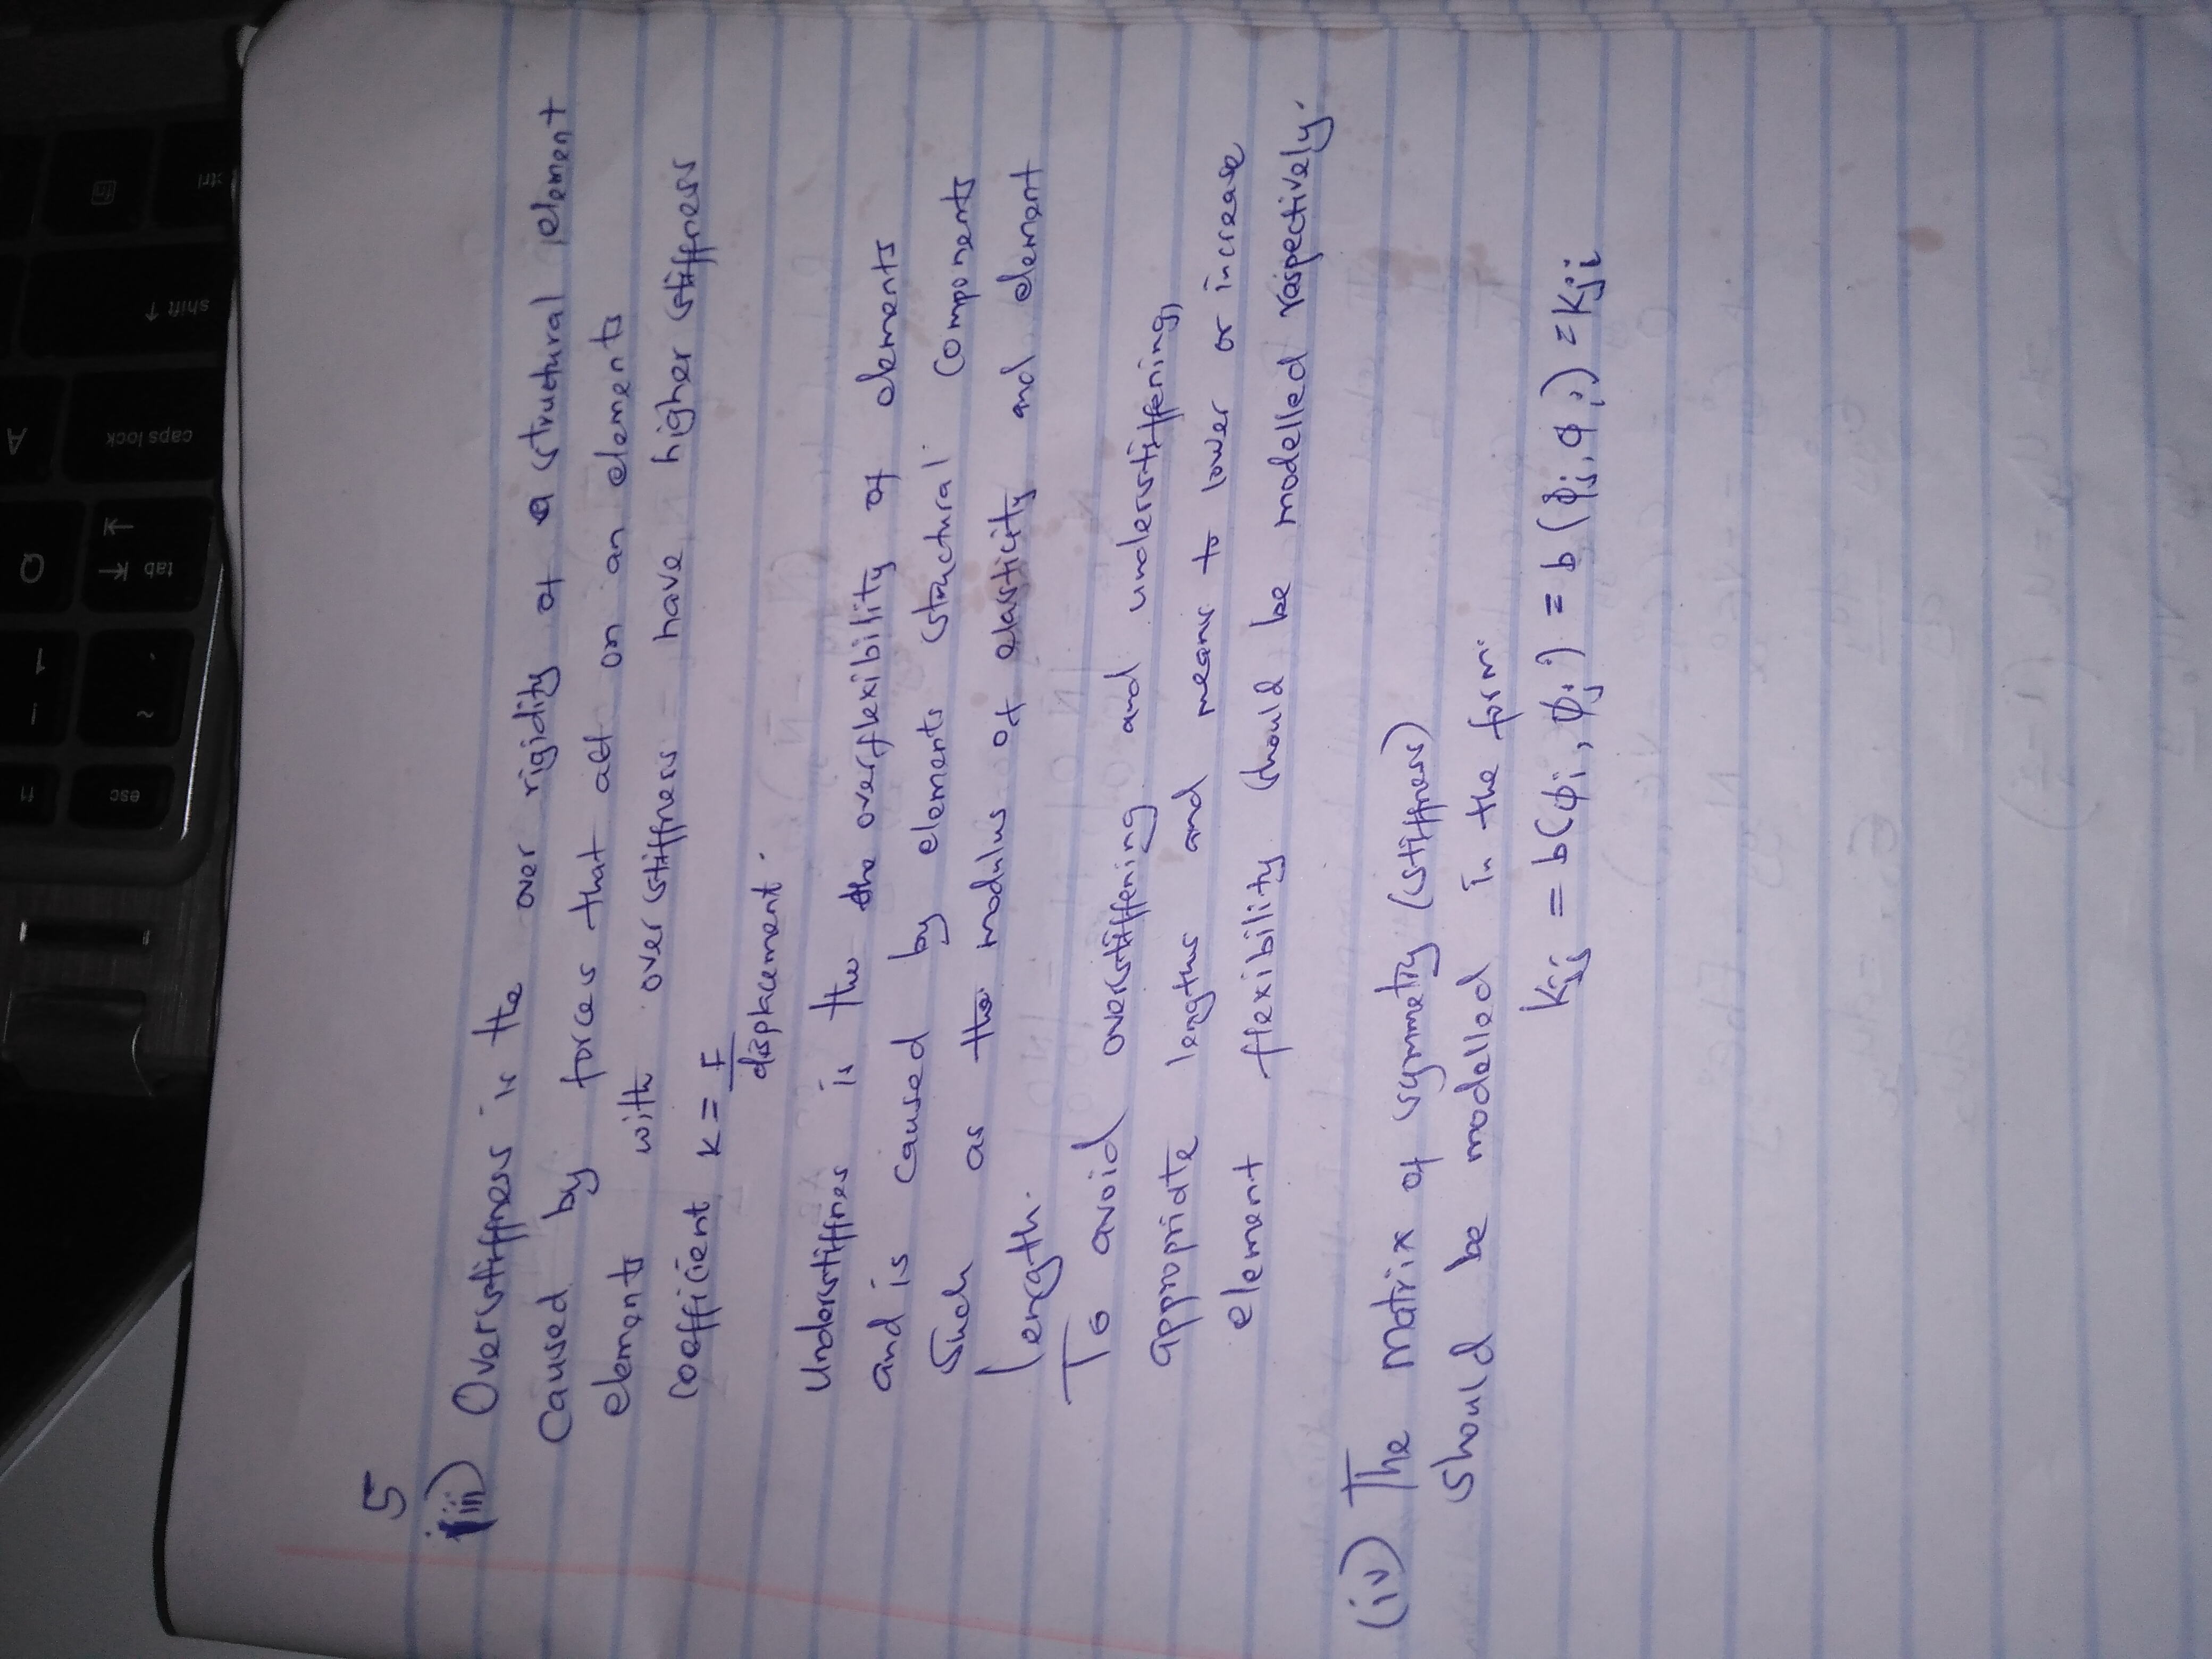 5
(iii) Overstiffness is the over rigidity of a structural element
Caused by forces that act on an elements
elements with over stiffness have higher stiffness
coefficient K = F
displacement.
Understiffnes is the the overflexibility of elements
and is caused by elements structural components
Such as the modulus of elasticity and element
length.
To avoid overstiffening and understiffening,
appropriate lengths and means to lower or increase
element flexibility should be modelled respectively.
(iv) The matrix of symmetry (stiffness)
should be modelled in the form.
Kij = b(φi, φj) = b(φj, φi) = Kji
esc
f1
~
!
1
tab
Q
caps lock
A
shift
ctrl
fn